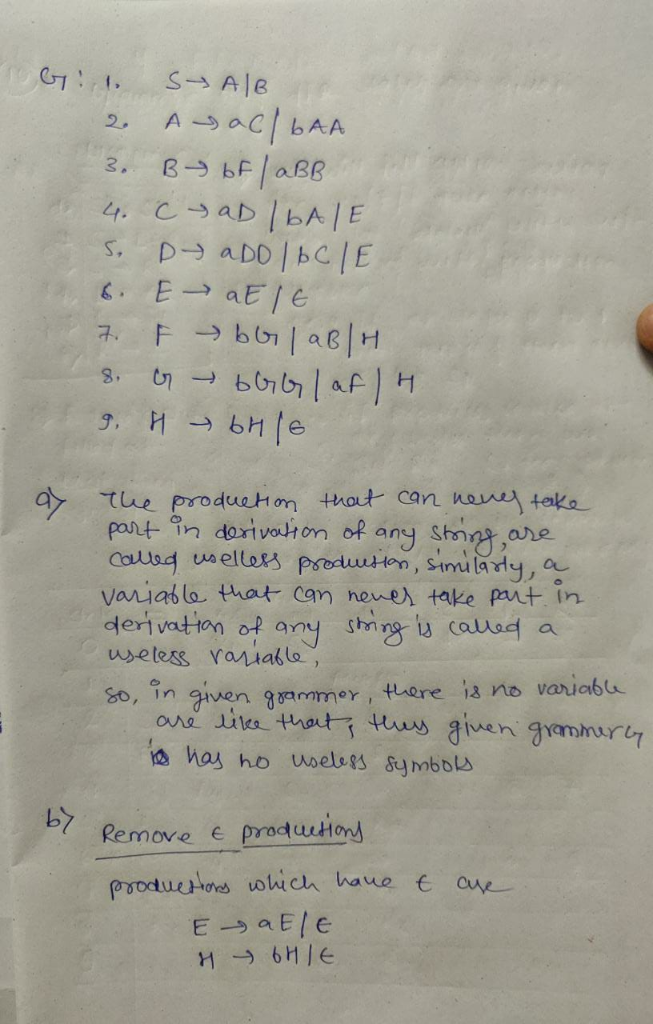 G: 1. S → A|B
2. A → aC | bAA
3. B → bF | aBB
4. C → aD | bA | E
5. D → aDD | bC | E
6. E → aE | ε
7. F → bG | aB | H
8. G → bGG | aF | H
9. H → bH | ε
a) The production that can never take
part in derivation of any string, are
called useless production, similarly, a
variable that can never take part in
derivation of any string is called a
useless variable,
so, in given grammer, there is no variable
are like that, thus given grammer G
has no useless symbols
b) Remove ε productions
productions which have ε are
E → aE | ε
H → bH | ε